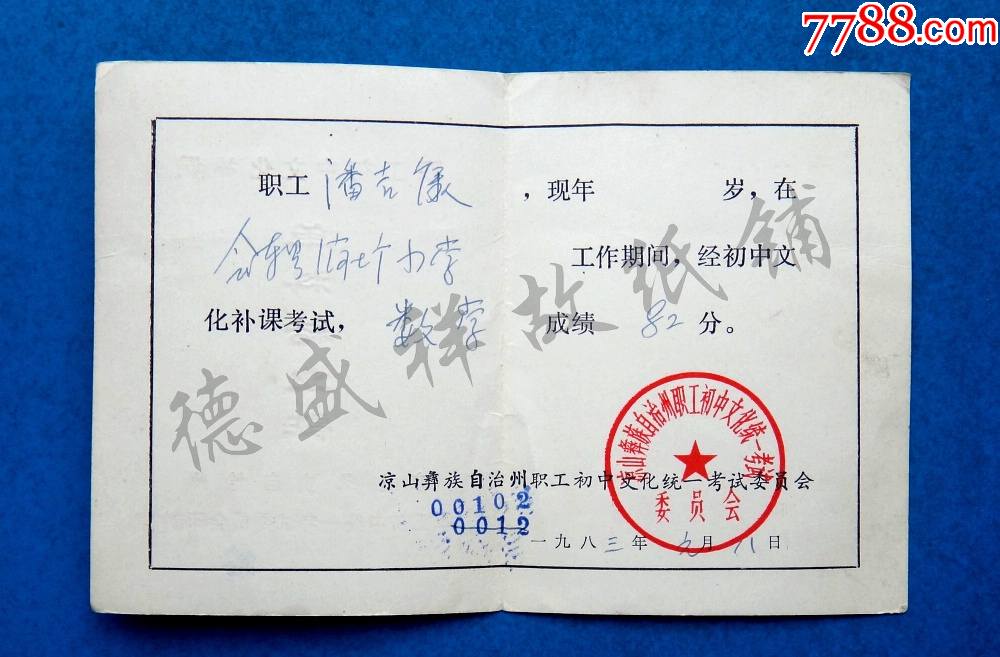 7788.com
职工 潘吉 ,现年 岁,在
会东 小学 工作期间,经初中文
化补课考试, 数学 成绩 82 分。
德盛祥故纸铺
凉山彝族自治州职工初中文化统一考试
委员会
凉山彝族自治州职工初中文化统一考试委员会
00102
0012
一九八三年 元月 八日